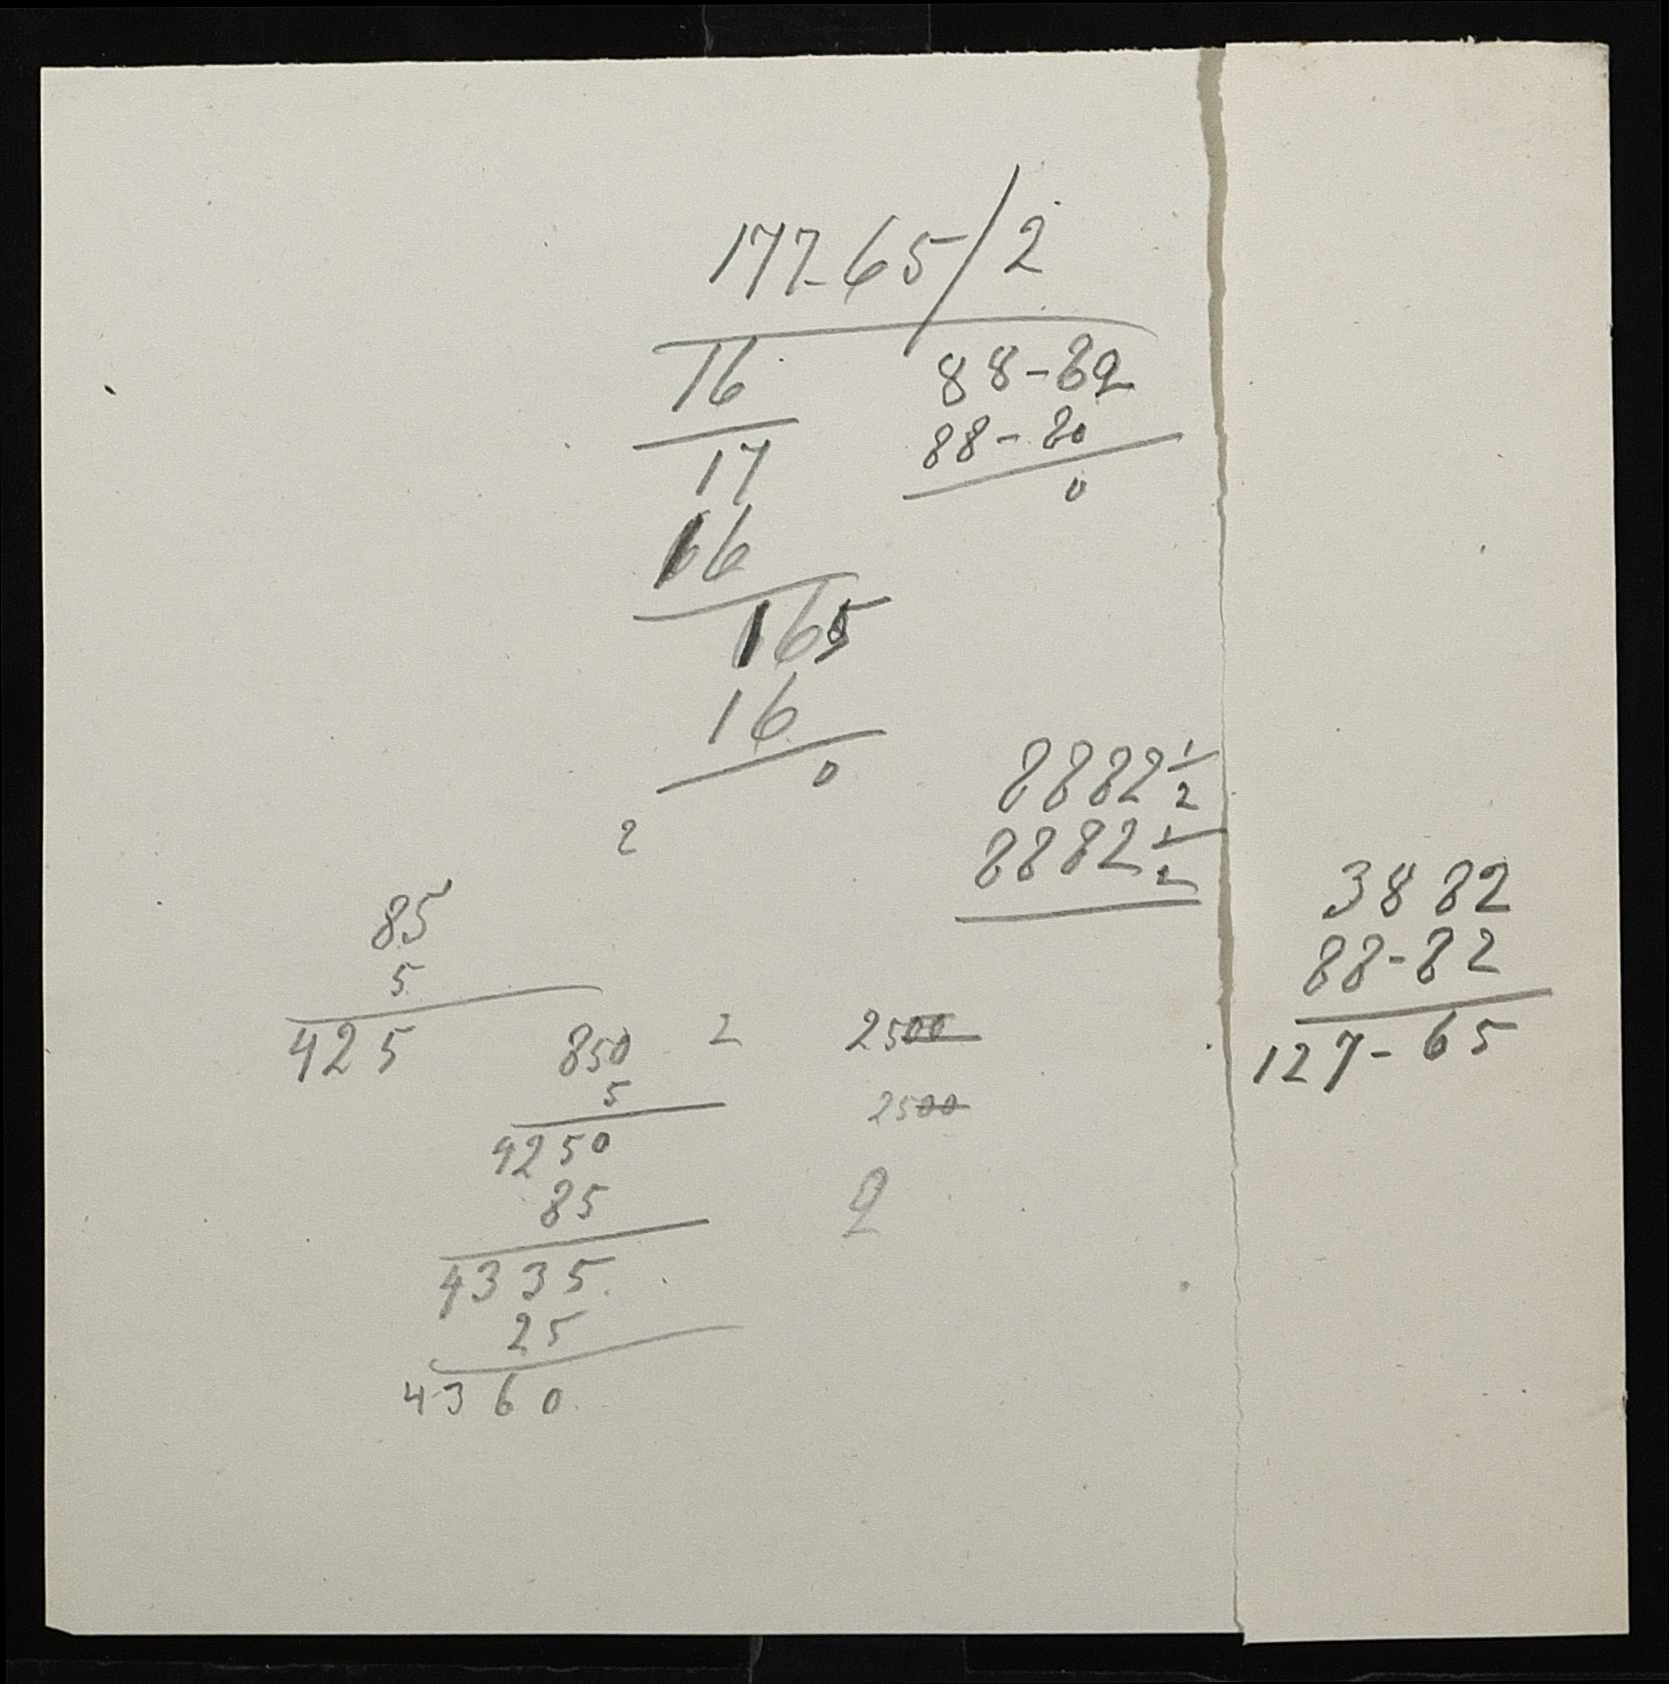 177-65/2
16 88-82
17 88-80
0
16
165
16
0
8882 1/2
2
8882 1/2
3882
85
88-82
5
127-65
425
850 2 2500
5
2500
4250
85
2
4335.
25
4360